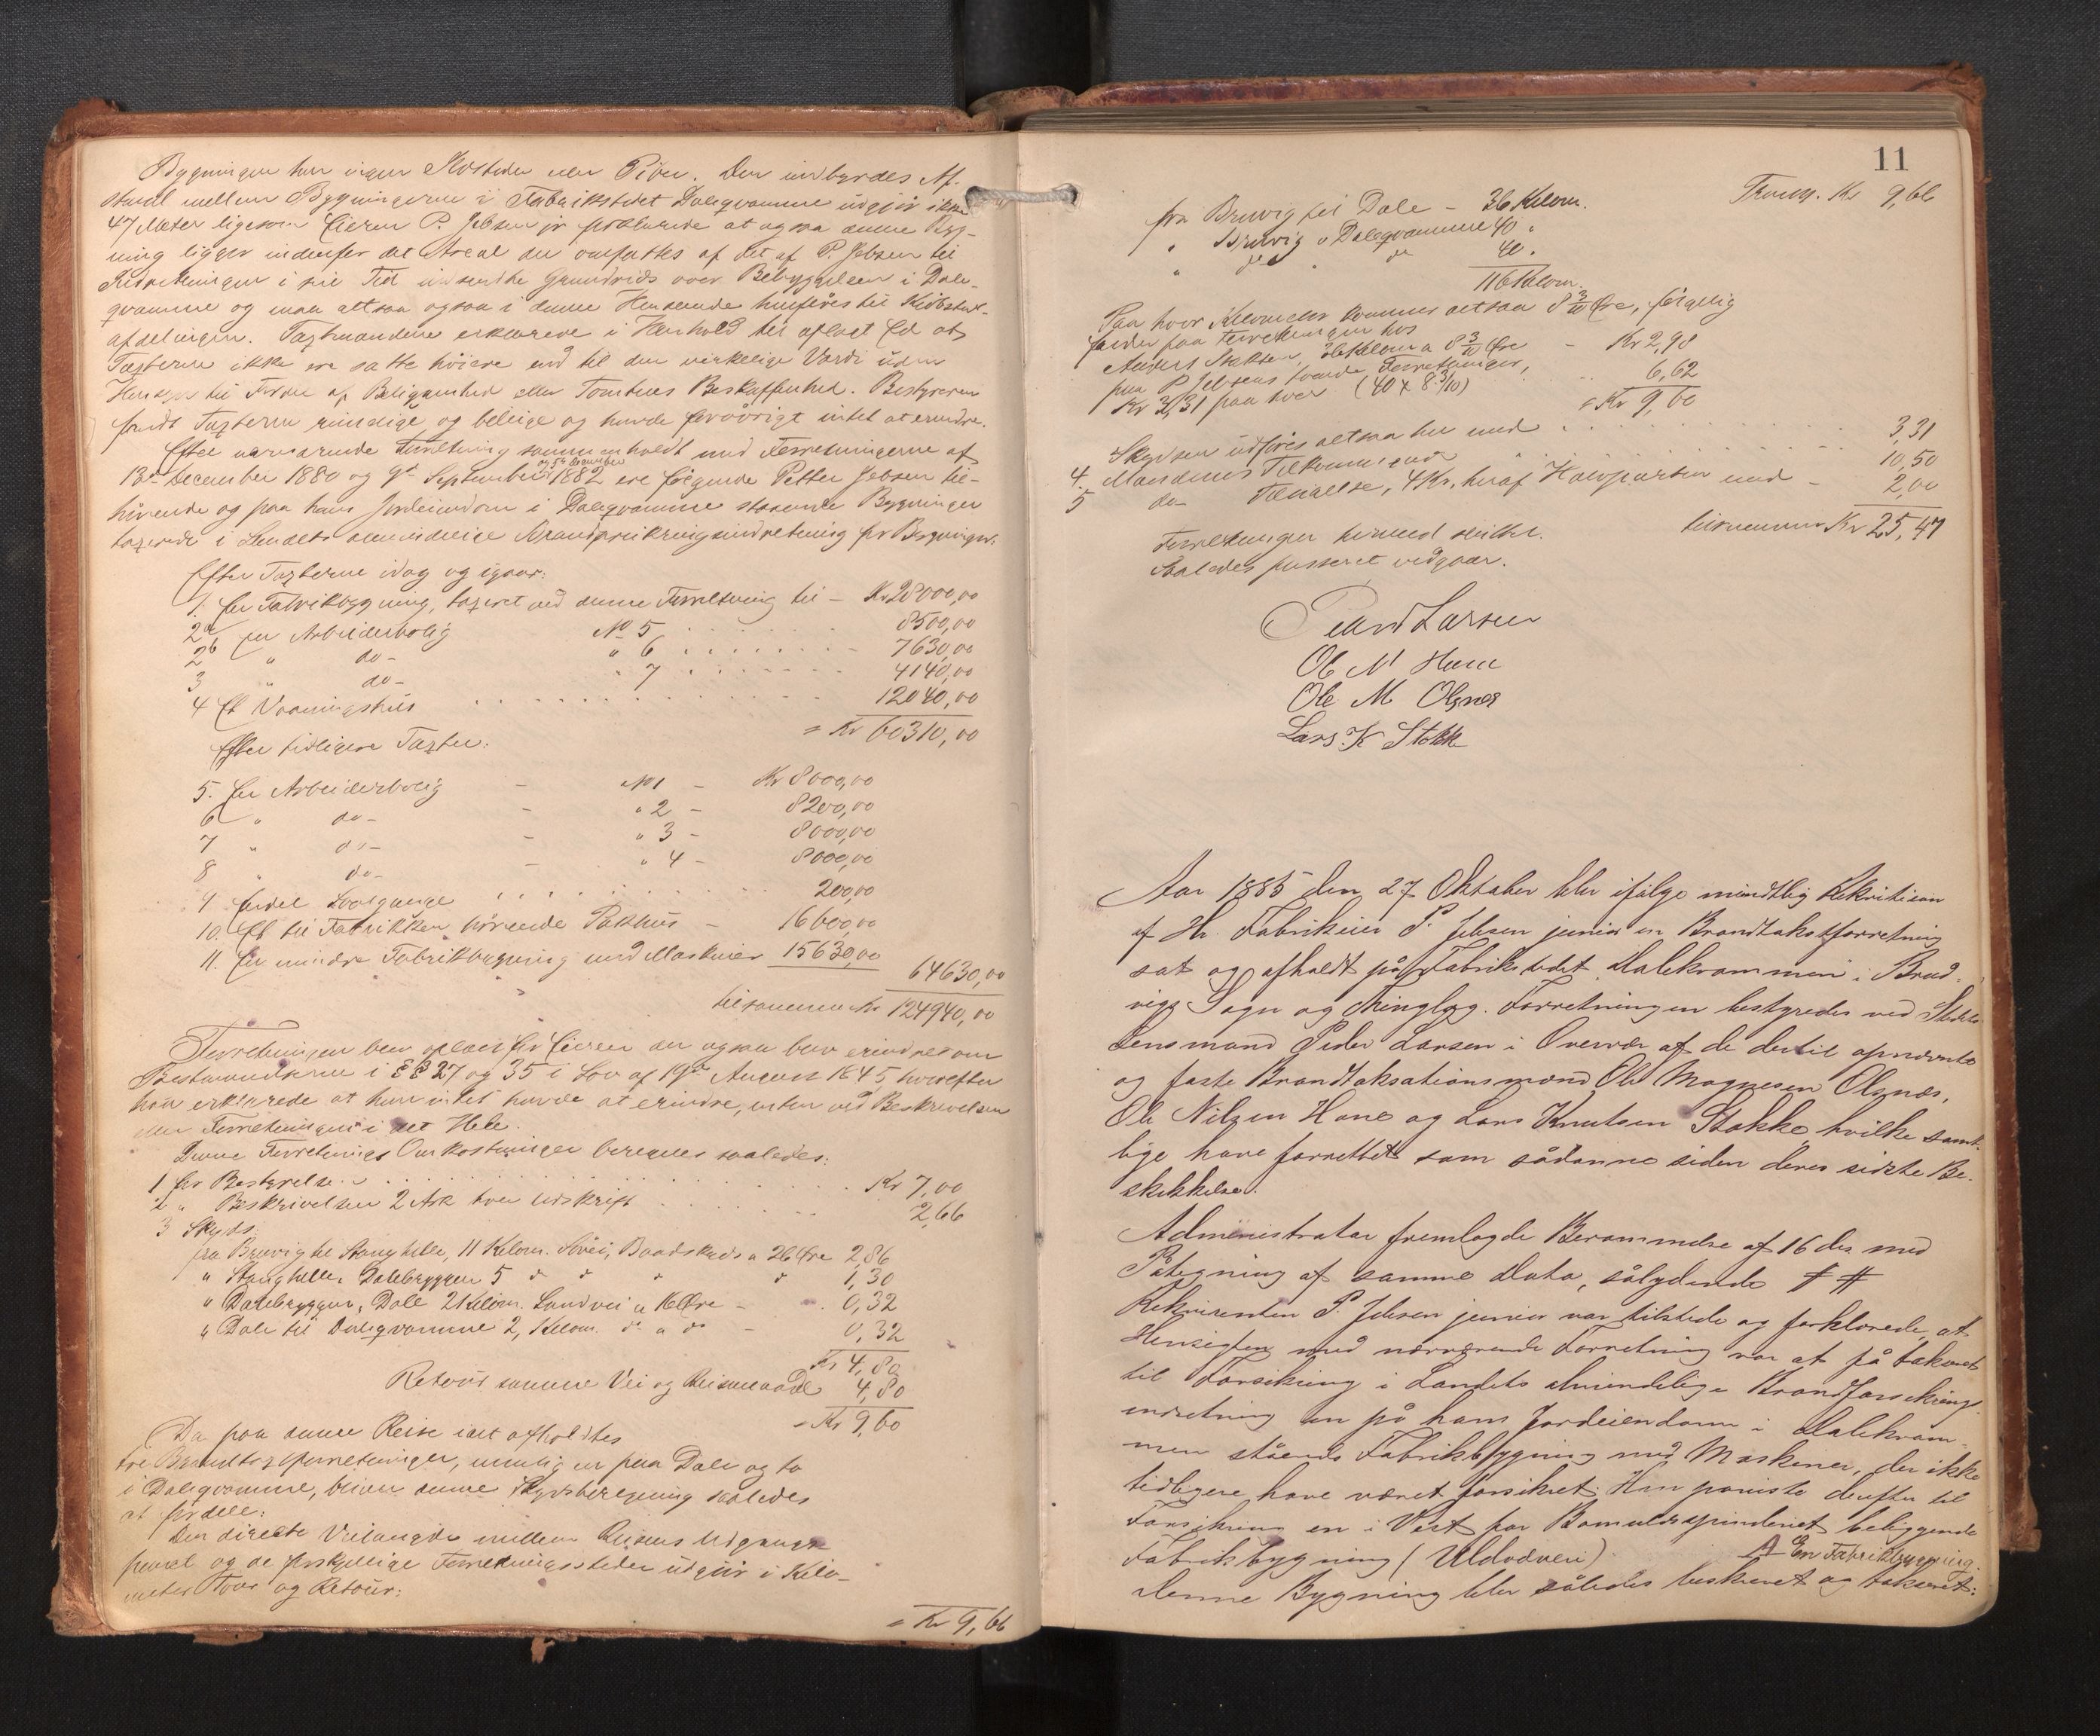 Bygningen har ingen Ildsteder eller Piber. Den indbyrdes Af-
stand mellem Bygningerne i Fabrikstedet Daleqvamme udgjør ikke
47 Meter ligesom Eieren P. Jebsen jr forklarede at ogsaa denne Byg-
ning ligger indenfor det Areal der omfattes af det af P. Jebsen til
Indretningen i sin Tid indsendte Grundrids over Bebyggelsen i Dale-
qvamme og maa altsaa ogsaa i denne Henseende henføres til Kjøbstad-
afdelingen. Taxtmændene erklærede i Henhold til aflagt Ed at
Taxterne ikke ere satte høiere end til den virkelige Værdi uden
Hensyn til Fordel af Beliggenhed eller Tomtens Beskaffenhed. Bestyreren
fandt Taxterne rimelige og billige og havde forøvrigt intet at erindre.
Efter nærværende Forretning sammenholdt med Forretningerne af
13de December 1880 og 9de September og 5te December 1882 ere følgende Petter Jebsen til-
hørende og paa hans Jordeiendom i Daleqvamme staaende Bygninger
taxerede i Landets almindelige Brandforsikringsindretning for Bygninger.
Efter Taxterne idag og igaar:
1. En Fabrikbygning, taxeret ved denne Forretning til – Kr 28000,00
2a En Arbeiderbolig No 5 . . . . 8500,00
2b " do – " 6 . . . . 7630,00
3 " do – " 7 . . . . 4140,00
4 Et Vaaningshus . . . . 12040,00
= Kr 60310,00
Efter tidligere Taxter:
5. En Arbeiderbolig – No 1 – Kr 8000,00
6 " do – – " 2 – 8200,00
7 " do – – " 3 – 8000,00
8 " do – – " 4 – 8000,00
9 Endel . . . . 200,00
10. Et til Fabrikken hørende Pakhus – 16600,00
11. En mindre Fabrikbygning med Maskiner 15630,00
64630,00
tilsammen Kr 124940,00
Forretningen blev oplæst for Eieren der ogsaa blev erindret om
Bestemmelserne i §§ 27 og 35 i Lov af 19de August 1845 hvorefter
han erklærede at han intet havde at erindre, enten ved Beskrivelsen
eller Forretningen i det Hele.
Denne Forretnings Omkostninger beregnes saaledes:
1 for Bestyrelse . . . . Kr 7,00
2 " Beskrivelsen 2 Ark hver Udskrift . . . . 2,66
3 Skyds:
fra Bruvig til Stanghelle, 11 Kilom. Søvei, Baadskyds a 26 Øre 2,86
" Stanghelle " Dalebryggen 5 do do " do 1,30
" Dalebryggen " Dale 2 Kilom. Landvei a 16 Øre – 0,32
" Dale til Daleqvamme 2, Kilom. do a do – 0,32
Kr 4,80
Retour samme Vei og Reisemaade 4,80
= Kr 9,60
Da paa denne Reise idet afholdtes
tre Brandtaxtforretninger, nemlig en paa Dale og to
i Daleqvamme, bliver denne Skydsberegning saaledes
at fordele:
Den directe Veilængde mellem Reisens Udgangs-
punct og de forskjellige Forretningssteder udgjør i Kilo-
meter Tour og Retour:
= Kr 9,66
11
Transp. Kr 9,66
fra Bruvig til Dale – 36 Kilom.
" Bruvig " Daleqvamme 40 "
" do " do 40 "
116 Kilom.
Paa hver Kilometer kommer altsaa 8 3/10 Øre, følgelig
falder paa Forretningen hos
Anders Stokken, 36 Kilom a 8 3/10 Øre – Kr 2,98
paa P. Jebsens tvende Forretninger,
Kr 3,31 paa hver (40 x 8 3/10) . . 6,62
= Kr 9,60
Skydsen udføres altsaa her med . . . . 3,31
4. Mændenes Tilkommende . . . . 10,50
5 do Tilsigelse, 4 Kr, heraf Halvparten med – 2,00
tilsammen Kr 25,47
Forretningen hermed sluttet.
Saaledes passeret vedgaar.
Peder Larsen
Ole N Hane
Ole M Olsnæs
Lars K Stokke
Aar 1885 den 27 Oktober blev ifølge mundtlig Rekvisition
af Hr. Fabrikeier P. Jebsen junior en Brandtakstforretning
sat og afholdt på Fabrikstedet Dalekvammen i Brud-
vigs Sogn og Thinglag. Forretningen bestyredes ved Stedets
Lensmand Peder Larsen i Overvær af de dertil opnævnte
og faste Brandtaksationsmænd Ole Magnesen Olsnæs,
Ole Nilsen Hane og Lars Knutsen Stokke, hvilke samt-
lige have forrettet som sådanne siden deres sidste Be-
skikkelse.
Administrator fremlagde Berammelse af 16 ds med
Påtegning af samme Dato, sålydende # #
Rekvirenten P. Jebsen junior var tilstede og forklarede, at
Hensigten med nærværende Forretning var at få takseret
til Forsikring i Landets almindelige Brandforsikrings-
indretning en på hans Jordeiendom i Dalekvam-
men stående Fabrikbygning med Maskiner, der ikke
tidligere have været forsikret. Han påviste derefter til
Forsikring en i Vest for Bomuldsspinderiet beliggende
Fabriksbygning (Uldvæveri). A En Fabrikbygning.
Denne Bygning blev således beskrevet og takseret: